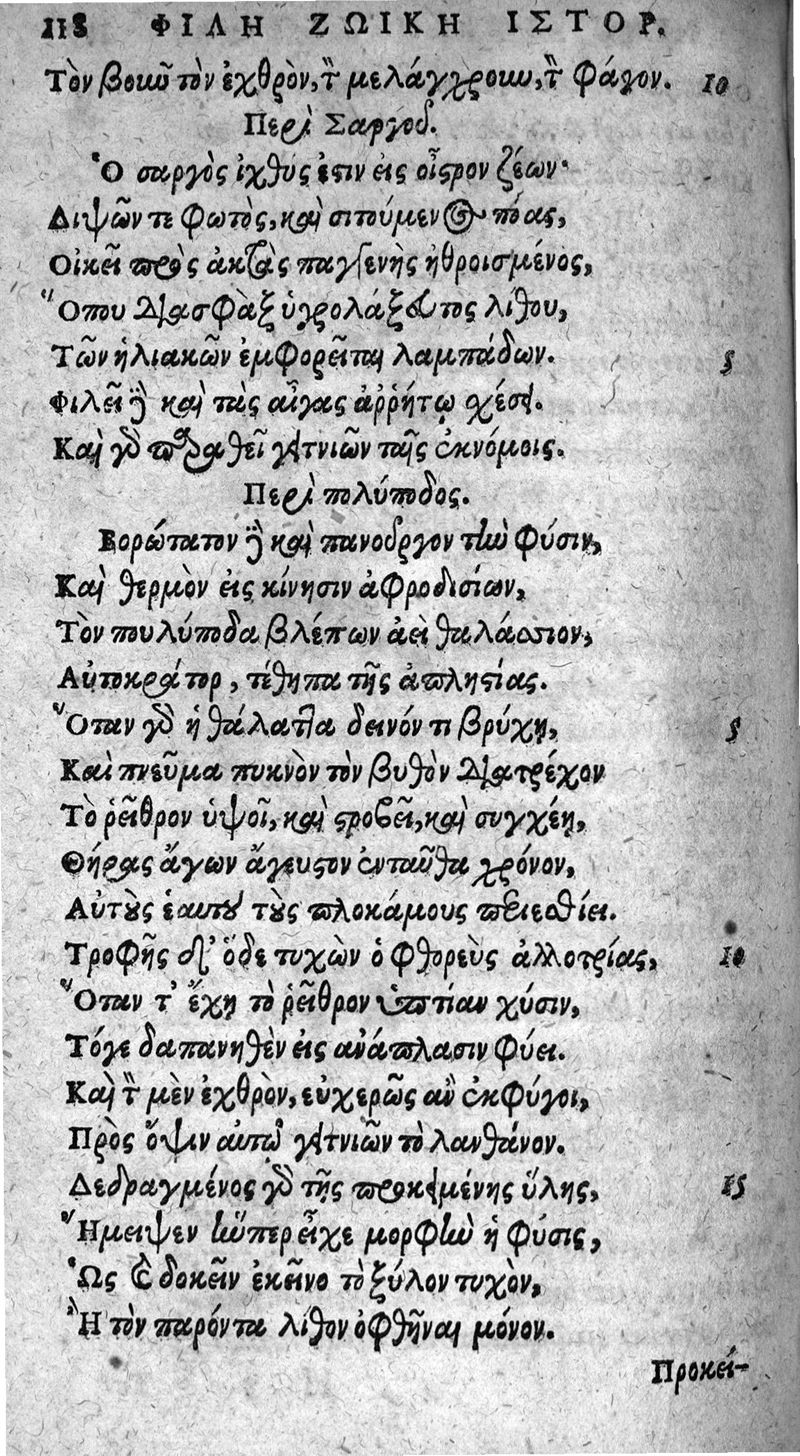 118 ΦΙΛΗ ΖΩΙΚΗ ΙΣΤΟΡ.
Τὸν βοῦν τὸν ἐχθρὸν, τὸν μελάγχρουν, τὸν φάγον. 10
Περὶ Σαργοῦ.
Ὁ σαργὸς ἰχθύς ἐστιν εἰς οἶστρον ζέων·
Διψῶν τε φωτὸς, καὶ σιτούμενος πόας,
Οἰκεῖ πρὸς ἀκτὰς παγγενὴς ἠθροισμένος,
Ὅπου διασφὰξ ὑγρολαξεύτος λίθου,
Τῶν ἡλιακῶν ἐμφορεῖται λαμπάδων. 5
Φιλεῖ δὲ καὶ τὰς αἶγας ἀῤῥήτῳ σχέσει.
Καὶ γὰρ παραθεῖ γειτνιῶν ταῖς ἐκνόμοις.
Περὶ πολύποδος.
Βορώτατον δὲ καὶ πανοῦργον τὴν φύσιν,
Καὶ θερμὸν εἰς κίνησιν ἀφροδισίων,
Τὸν πουλύποδα βλέπων ἀεὶ θαλάσσιον,
Αὐτοκράτορ, τέθηπα τῆς ἀπληστίας.
Ὅταν γὰρ ἡ θάλαττα δεινόν τι βρύχῃ, 5
Καὶ πνεῦμα πυκνὸν τὸν βυθὸν διατρέχον
Τὸ ῥεῖθρον ὑψοῖ, καὶ στροβεῖ, καὶ συγχέῃ,
Θήρας ἄγων ἄγευστον ἐνταῦθα χρόνον,
Αὐτοὺς ἑαυτοῦ τοὺς πλοκάμους περιεσθίει.
Τροφῆς δ' ὅδε τυχὼν ὁ φθορεὺς ἀλλοτρίας, 10
Ὅταν τ' ἔχῃ τὸ ῥεῖθρον ὑπτίαν χύσιν,
Τόγε δαπανηθὲν εἰς ἀνάπλασιν φύει.
Καὶ τὸν μὲν ἐχθρὸν, εὐχερῶς ἂν ἐκφύγοι,
Πρὸς ὄψιν αὐτῷ γειτνιῶν τὸ λανθάνον.
Δεδραγμένος γὰρ τῆς προκειμένης ὕλης, 15
Ἤμειψεν ἥνπερ εἶχε μορφὴν ἡ φύσις,
Ὡς καὶ δοκεῖν ἐκεῖνο τὸ ξύλον τυχὸν,
Ἢ τὸν παρόντα λίθον ὀφθῆναι μόνον.
Προκεί-